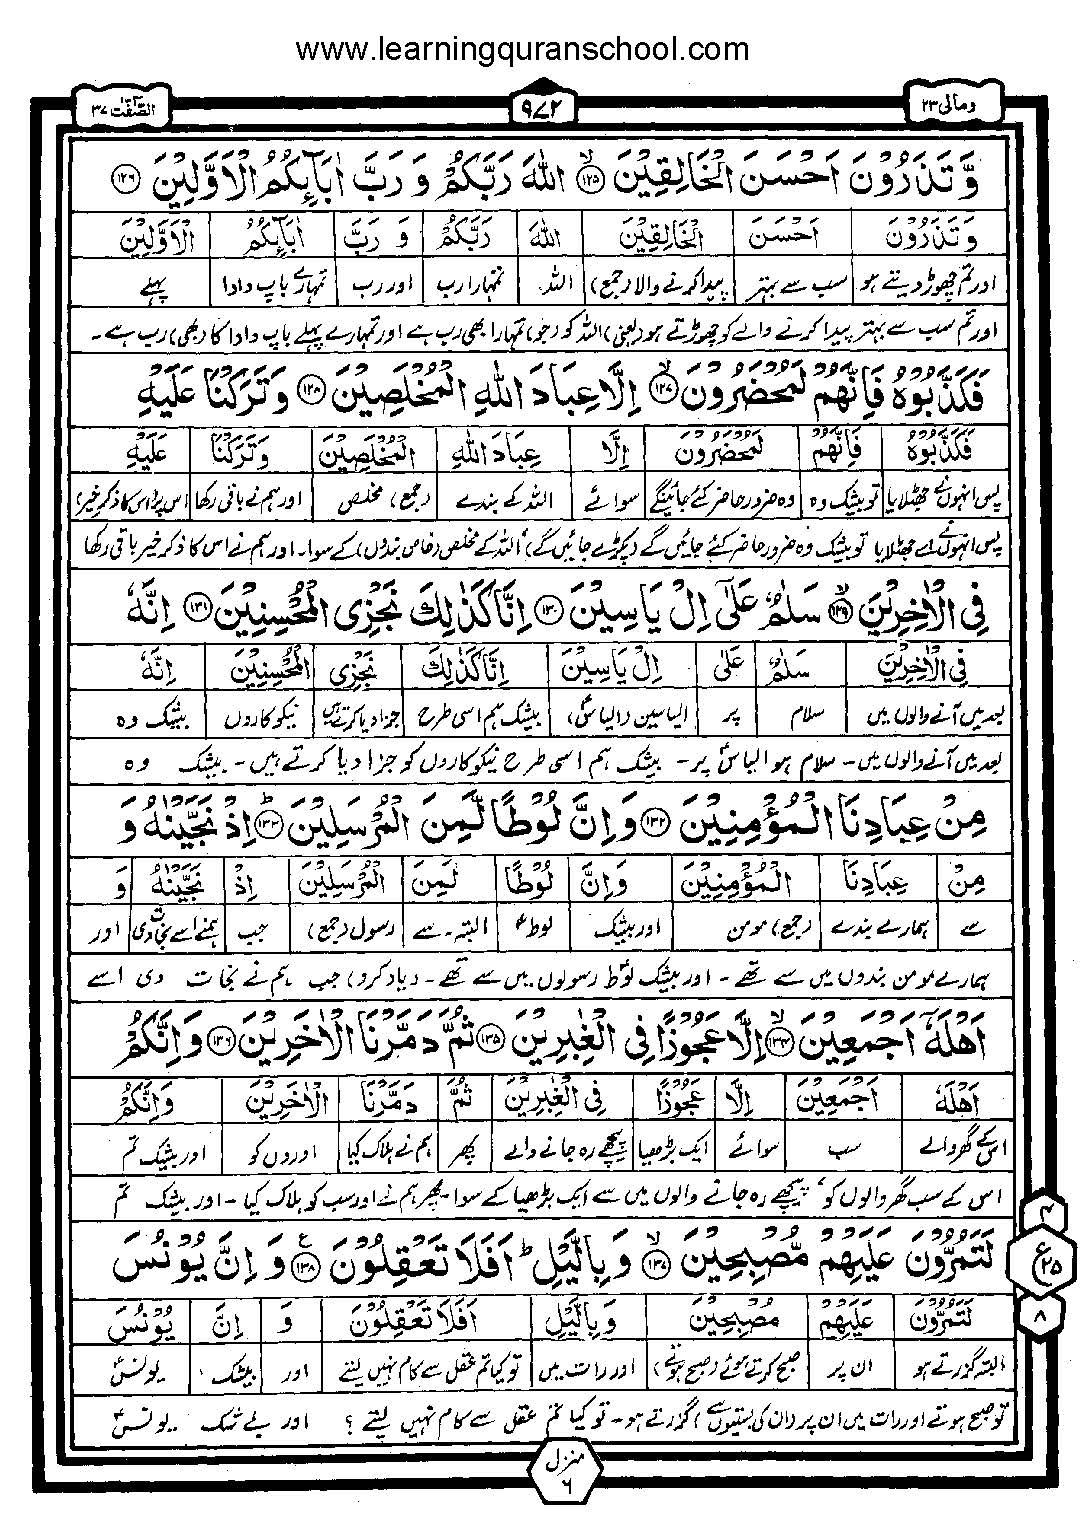 www.learningquranschool.com
ومالی ۲۳
۹۷۲
الصّٰفّٰت ۳۷
وَّ تَذَرُوْنَ اَحْسَنَ الْخَالِقِيْنَ ۝۱۲۵ اللّٰهَ رَبَّكُمْ وَ رَبَّ اٰبَآئِكُمُ الْاَوَّلِيْنَ ۝۱۲۶
وَ تَذَرُوْنَ اَحْسَنَ الْخَالِقِيْنَ اللّٰهَ رَبَّكُمْ وَ رَبَّ اٰبَآئِكُمُ الْاَوَّلِيْنَ
اور تم چھوڑ دیتے ہو سب سے بہتر پیدا کرنے والا (جمع) اللہ تمہارا رب اور رب تمہارے باپ دادا پہلے
اور تم سب سے بہتر پیدا کرنے والے کو چھوڑتے ہو (یعنی) اللہ کو (جو) تمہارا بھی رب ہے اور تمہارے پہلے باپ دادا کا (بھی) رب ہے۔
فَكَذَّبُوْهُ فَاِنَّهُمْ لَمُحْضَرُوْنَ ۝۱۲۷ اِلَّا عِبَادَ اللّٰهِ الْمُخْلَصِيْنَ ۝۱۲۸ وَ تَرَكْنَا عَلَيْهِ
فَكَذَّبُوْهُ فَاِنَّهُمْ لَمُحْضَرُوْنَ اِلَّا عِبَادَ اللّٰهِ الْمُخْلَصِيْنَ وَ تَرَكْنَا عَلَيْهِ
پس انہوں نے جھٹلایا تو بیشک وہ وہ ضرور حاضر کئے جائینگے سوائے اللہ کے بندے (جمع) مخلص اور ہم نے باقی رکھا اس پر (اس کا ذکر خیر)
پس انہوں نے اسے جھٹلایا تو بیشک وہ ضرور حاضر کئے جائیں گے (پکڑے جائیں گے) اللہ کے مخلص (خاص بندوں) کے سوا۔ اور ہم نے اس کا ذکر خیر باقی رکھا
فِى الْاٰخِرِيْنَ ۝۱۲۹ سَلٰمٌ عَلٰٓى اِلْ يَاسِيْنَ ۝۱۳۰ اِنَّا كَذٰلِكَ نَجْزِى الْمُحْسِنِيْنَ ۝۱۳۱ اِنَّهٗ
فِى الْاٰخِرِيْنَ سَلٰمٌ عَلٰٓى اِلْ يَاسِيْنَ اِنَّا كَذٰلِكَ نَجْزِى الْمُحْسِنِيْنَ اِنَّهٗ
بعد میں آنے والوں میں سلام پر الیاسین (الیاسؑ) بیشک ہم اسی طرح جزا دیا کرتے ہیں نیکوکاروں بیشک وہ
بعد میں آنے والوں میں۔ سلام ہو الیاسؑ پر۔ بیشک ہم اسی طرح نیکو کاروں کو جزا دیا کرتے ہیں۔ بیشک وہ
مِنْ عِبَادِنَا الْمُؤْمِنِيْنَ ۝۱۳۲ وَ اِنَّ لُوْطًا لَّمِنَ الْمُرْسَلِيْنَ ۝۱۳۳ اِذْ نَجَّيْنٰهُ وَ
مِنْ عِبَادِنَا الْمُؤْمِنِيْنَ وَ اِنَّ لُوْطًا لَّمِنَ الْمُرْسَلِيْنَ اِذْ نَجَّيْنٰهُ وَ
سے ہمارے بندے (جمع) مومن اور بیشک لوطؑ البتہ۔ سے رسول (جمع) جب ہمنے اسے نجات دی اور
ہمارے مومن بندوں میں سے تھے۔ اور بیشک لوطؑ رسولوں میں سے تھے۔ (یاد کرو) جب ہم نے نجات دی اسے
اَهْلَهٗٓ اَجْمَعِيْنَ ۝۱۳۴ اِلَّا عَجُوْزًا فِى الْغٰبِرِيْنَ ۝۱۳۵ ثُمَّ دَمَّرْنَا الْاٰخَرِيْنَ ۝۱۳۶ وَ اِنَّكُمْ
اَهْلَهٗ اَجْمَعِيْنَ اِلَّا عَجُوْزًا فِى الْغٰبِرِيْنَ ثُمَّ دَمَّرْنَا الْاٰخَرِيْنَ وَ اِنَّكُمْ
اس کے گھر والے سب سوائے ایک بڑھیا پیچھے رہ جانے والے پھر ہم نے ہلاک کیا اوروں کو اور بیشک تم
اس کے سب گھر والوں کو، پیچھے رہ جانے والوں میں سے ایک بڑھیا کے سوا۔ پھر ہم نے اور سب کو ہلاک کیا۔ اور بیشک تم
لَتَمُرُّوْنَ عَلَيْهِمْ مُّصْبِحِيْنَ ۝۱۳۷ وَ بِالَّيْلِ ؕ اَفَلَا تَعْقِلُوْنَ ۝۱۳۸ وَ اِنَّ يُوْنُسَ
لَتَمُرُّوْنَ عَلَيْهِمْ مُصْبِحِيْنَ وَ بِالَّيْلِ اَفَلَا تَعْقِلُوْنَ وَ اِنَّ يُوْنُسَ
البتہ گزرتے ہو ان پر صبح کرتے ہوئے (صبح ہوتے) اور رات میں تو کیا تم عقل سے کام نہیں لیتے اور بیشک یونسؑ
تو صبح ہوتے اور رات میں ان پر (ان کی بستیوں سے) گزرتے ہو۔ تو کیا تم عقل سے کام نہیں لیتے؟ اور بے شک یونسؑ
۴
ع ۲۵
۸
منزل ۶